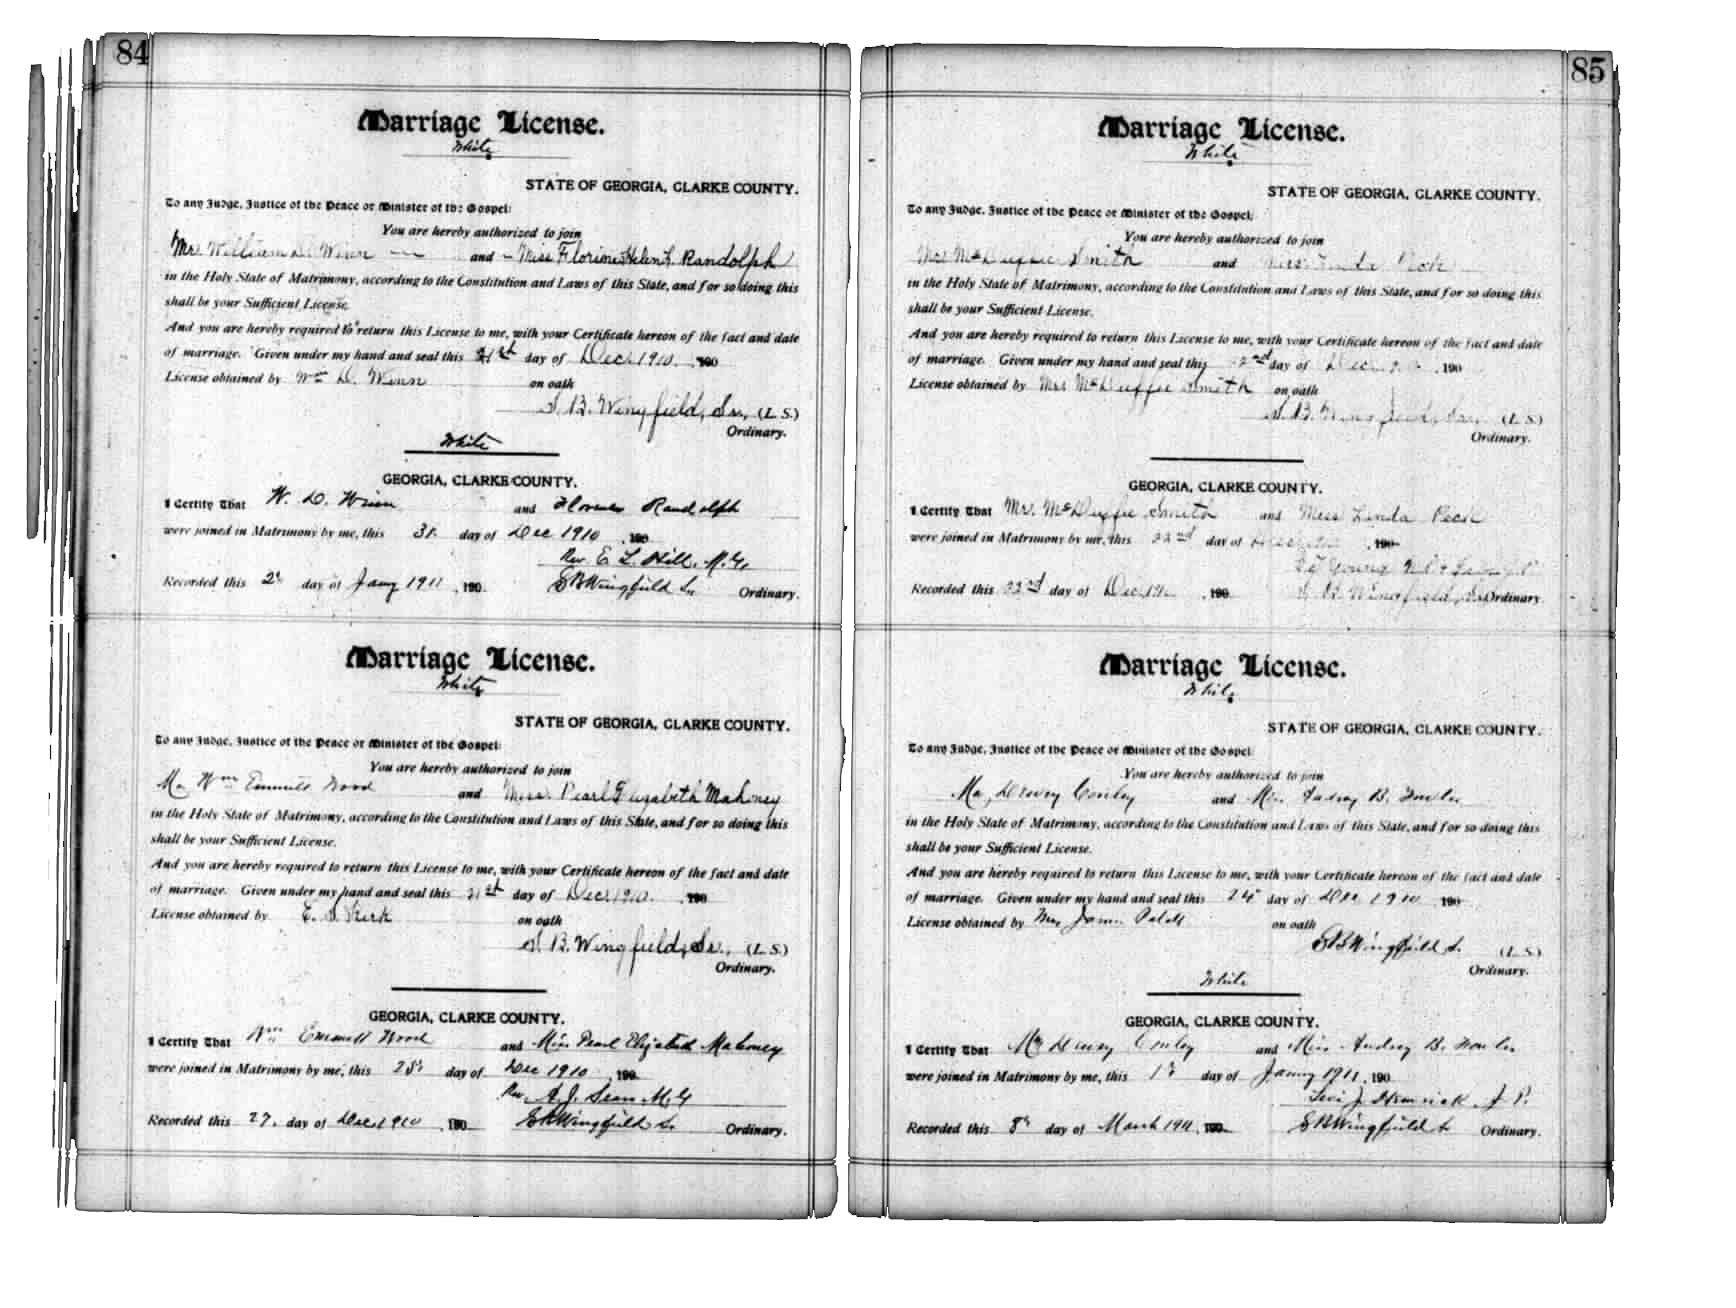 84
Marriage License.
White
STATE OF GEORGIA, CLARKE COUNTY.
To any Judge, Justice of the Peace or Minister of the Gospel:
You are hereby authorized to join
Mr. William D. Winn and Miss Florine Helen F. Randolph
in the Holy State of Matrimony, according to the Constitution and Laws of this State, and for so doing this
shall be your Sufficient License.
And you are hereby required to return this License to me, with your Certificate hereon of the fact and date
of marriage. Given under my hand and seal this 21st day of Dec. 1910. 190
License obtained by Wm D. Winn on oath
S. B. Wingfield, Sr., (L. S.)
Ordinary.
White
GEORGIA, CLARKE COUNTY.
I Certify That W. D. Winn and Randolph
were joined in Matrimony by me, this 31 day of Dec 1910 .190
Rev E. L. Hill, M. G.
Recorded this 2" day of Jany 1911 , 190 S B Wingfield Sr Ordinary.
Marriage License.
White
STATE OF GEORGIA, CLARKE COUNTY.
To any Judge, Justice of the Peace or Minister of the Gospel:
You are hereby authorized to join
Mr Wm Wood and Miss Pearl Elizabeth Mahoney
in the Holy State of Matrimony, according to the Constitution and Laws of this State, and for so doing this
shall be your Sufficient License.
And you are hereby required to return this License to me, with your Certificate hereon of the fact and date
of marriage. Given under my hand and seal this 21st day of Dec. 1910. 190
License obtained by E. S. on oath
S. B. Wingfield, Sr., (L. S.)
Ordinary.
GEORGIA, CLARKE COUNTY.
I Certify That Wm Emmett Wood and Miss Pearl Elizabeth Mahoney
were joined in Matrimony by me, this 25" day of Dec 1910 190
Rev A. J. M. G
Recorded this 27. day of Dec. 1910 , 190 S B Wingfield Sr Ordinary.
85
Marriage License.
White
STATE OF GEORGIA, CLARKE COUNTY.
To any Judge, Justice of the Peace or Minister of the Gospel:
You are hereby authorized to join
Mr. McDuffie Smith and Miss Linda Peck
in the Holy State of Matrimony, according to the Constitution and Laws of this State, and for so doing this
shall be your Sufficient License.
And you are hereby required to return this License to me, with your Certificate hereon of the fact and date
of marriage. Given under my hand and seal this 22nd day of Dec. .190
License obtained by Mr. McDuffie Smith on oath
S. B. Wingfield, Sr. (L. S.)
Ordinary.
GEORGIA, CLARKE COUNTY.
I Certify That Mr. McDuffie Smith and Miss Linda Peck
were joined in Matrimony by me, this 22nd day of .190
Young
Recorded this 22nd day of Dec. , 190 S. B. Wingfield, Sr. Ordinary
Marriage License.
White
STATE OF GEORGIA, CLARKE COUNTY.
To any Judge, Justice of the Peace or Minister of the Gospel:
You are hereby authorized to join
Mr, Dewey Conley and Miss Audrey B. Fowler
in the Holy State of Matrimony, according to the Constitution and Laws of this State, and for so doing this
shall be your Sufficient License.
And you are hereby required to return this License to me, with your Certificate hereon of the fact and date
of marriage. Given under my hand and seal this 24" day of Dec. 1910 190
License obtained by on oath
S B Wingfield Sr. (L. S.)
Ordinary.
White
GEORGIA, CLARKE COUNTY.
I Certify That Mr Dewey Conley and Miss Audrey B. Fowler
were joined in Matrimony by me, this 1" day of Jany 1911 , 190
Levi J. J. P.
Recorded this 8" day of March 1911 , 190 S B Wingfield Sr Ordinary.